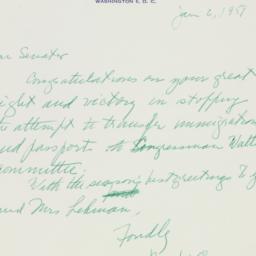 WASHINGTON 5, D. C.
Jan 6, 1951
Senator
Congratulations on your great
ight and victory in stopping
attempt to transfer immigration
and passports to Congressman Walt
committee.
With the season's best greetings to y
and Mrs Lehman,
Fondly